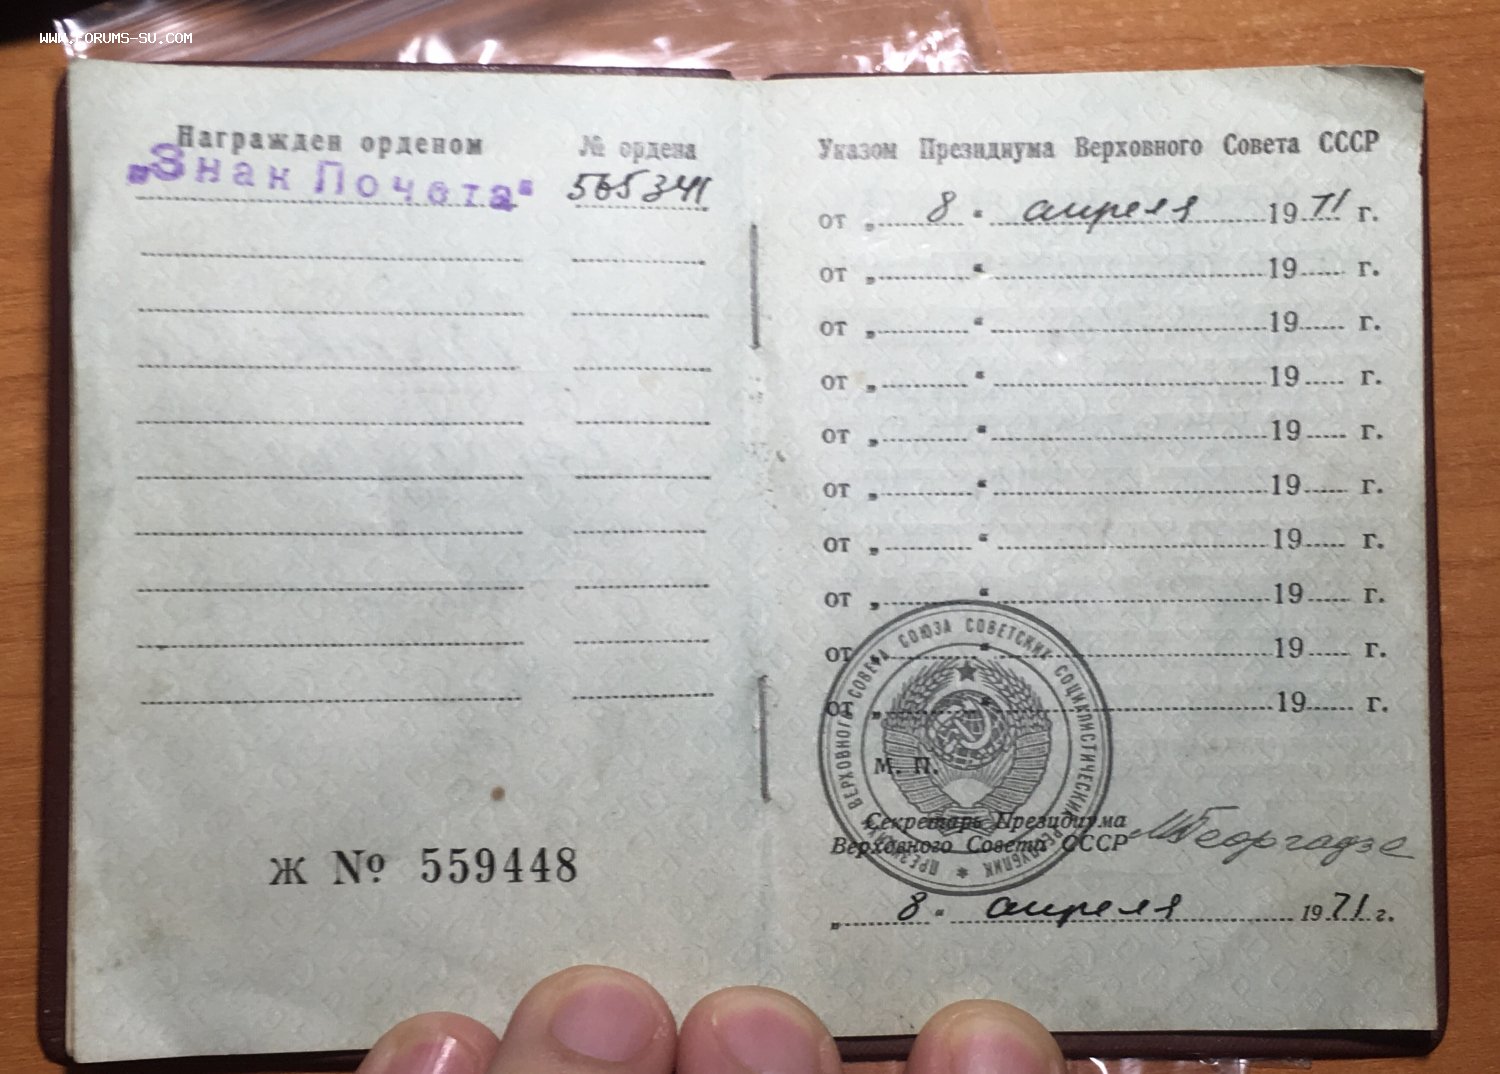 WWW.FORUMS-SU.COM
Награжден орденом
№ ордена
„Знак Почета“
565341
Ж № 559448
Указом Президиума Верховного Совета СССР
от „ 8 “ апреля 1971 г.
от „ “ 19 г.
от „ “ 19 г.
от „ “ 19 г.
от „ “ 19 г.
от „ “ 19 г.
от „ “ 19 г.
от „ “ 19 г.
от „ “ 19 г.
от „ “ 19 г.
ПРЕЗИДИУМ ВЕРХОВНОГО СОВЕТА СОЮЗА СОВЕТСКИХ СОЦИАЛИСТИЧЕСКИХ РЕСПУБЛИК
М. П.
Секретарь Президиума
Верховного Совета СССР
М Георгадзе
„ 8 “ апреля 1971 г.